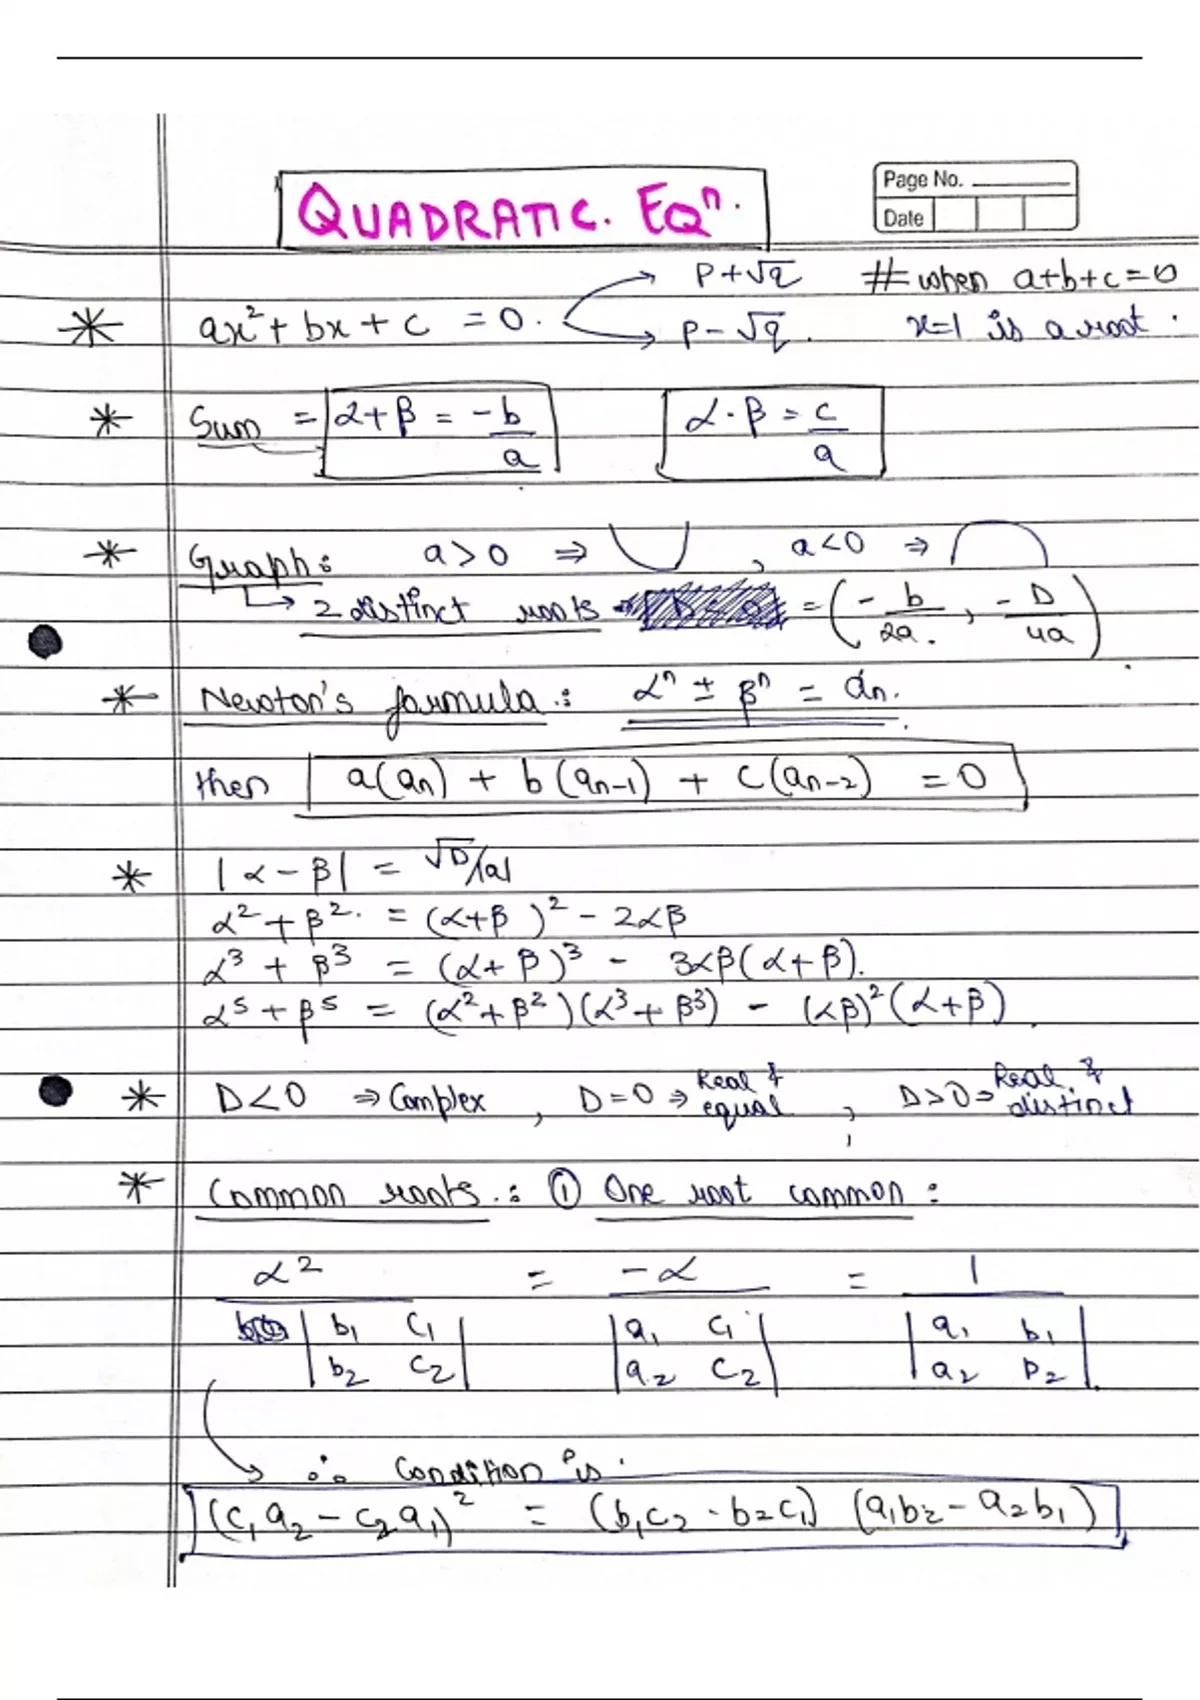 QUADRATIC. EQⁿ.
Page No.
Date
p+√q # when a+b+c=0
* ax²+ bx + c = 0.
p-√q. x=1 is a root.
* Sum = α+β = -b/a α·β = c/a
* Graph: a>0 ⇒ , a<0 ⇒
↳ 2 distinct roots = (-b/2a., -D/4a)
* Newton's formula.: αⁿ ± βⁿ = αn.
then a(an) + b(an-1) + c(an-2) = 0
* |α-β| = √D/|a|
α²+β². = (α+β)² - 2αβ
α³ + β³ = (α+β)³ - 3αβ(α+β).
α⁵+β⁵ = (α²+β²)(α³+β³) - (αβ)²(α+β)
* D<0 ⇒ Complex, D=0 ⇒ Real & equal, D>0 ⇒ Real & distinct
* Common roots.: ① One root common:
α² = -α = 1
|b₁ c₁| |a₁ c₁| |a₁ b₁|
|b₂ c₂| |a₂ c₂| |a₂ b₂|
∴ Condition is.
(c₁a₂-c₂a₁)² = (b₁c₂-b₂c₁) (a₁b₂-a₂b₁)